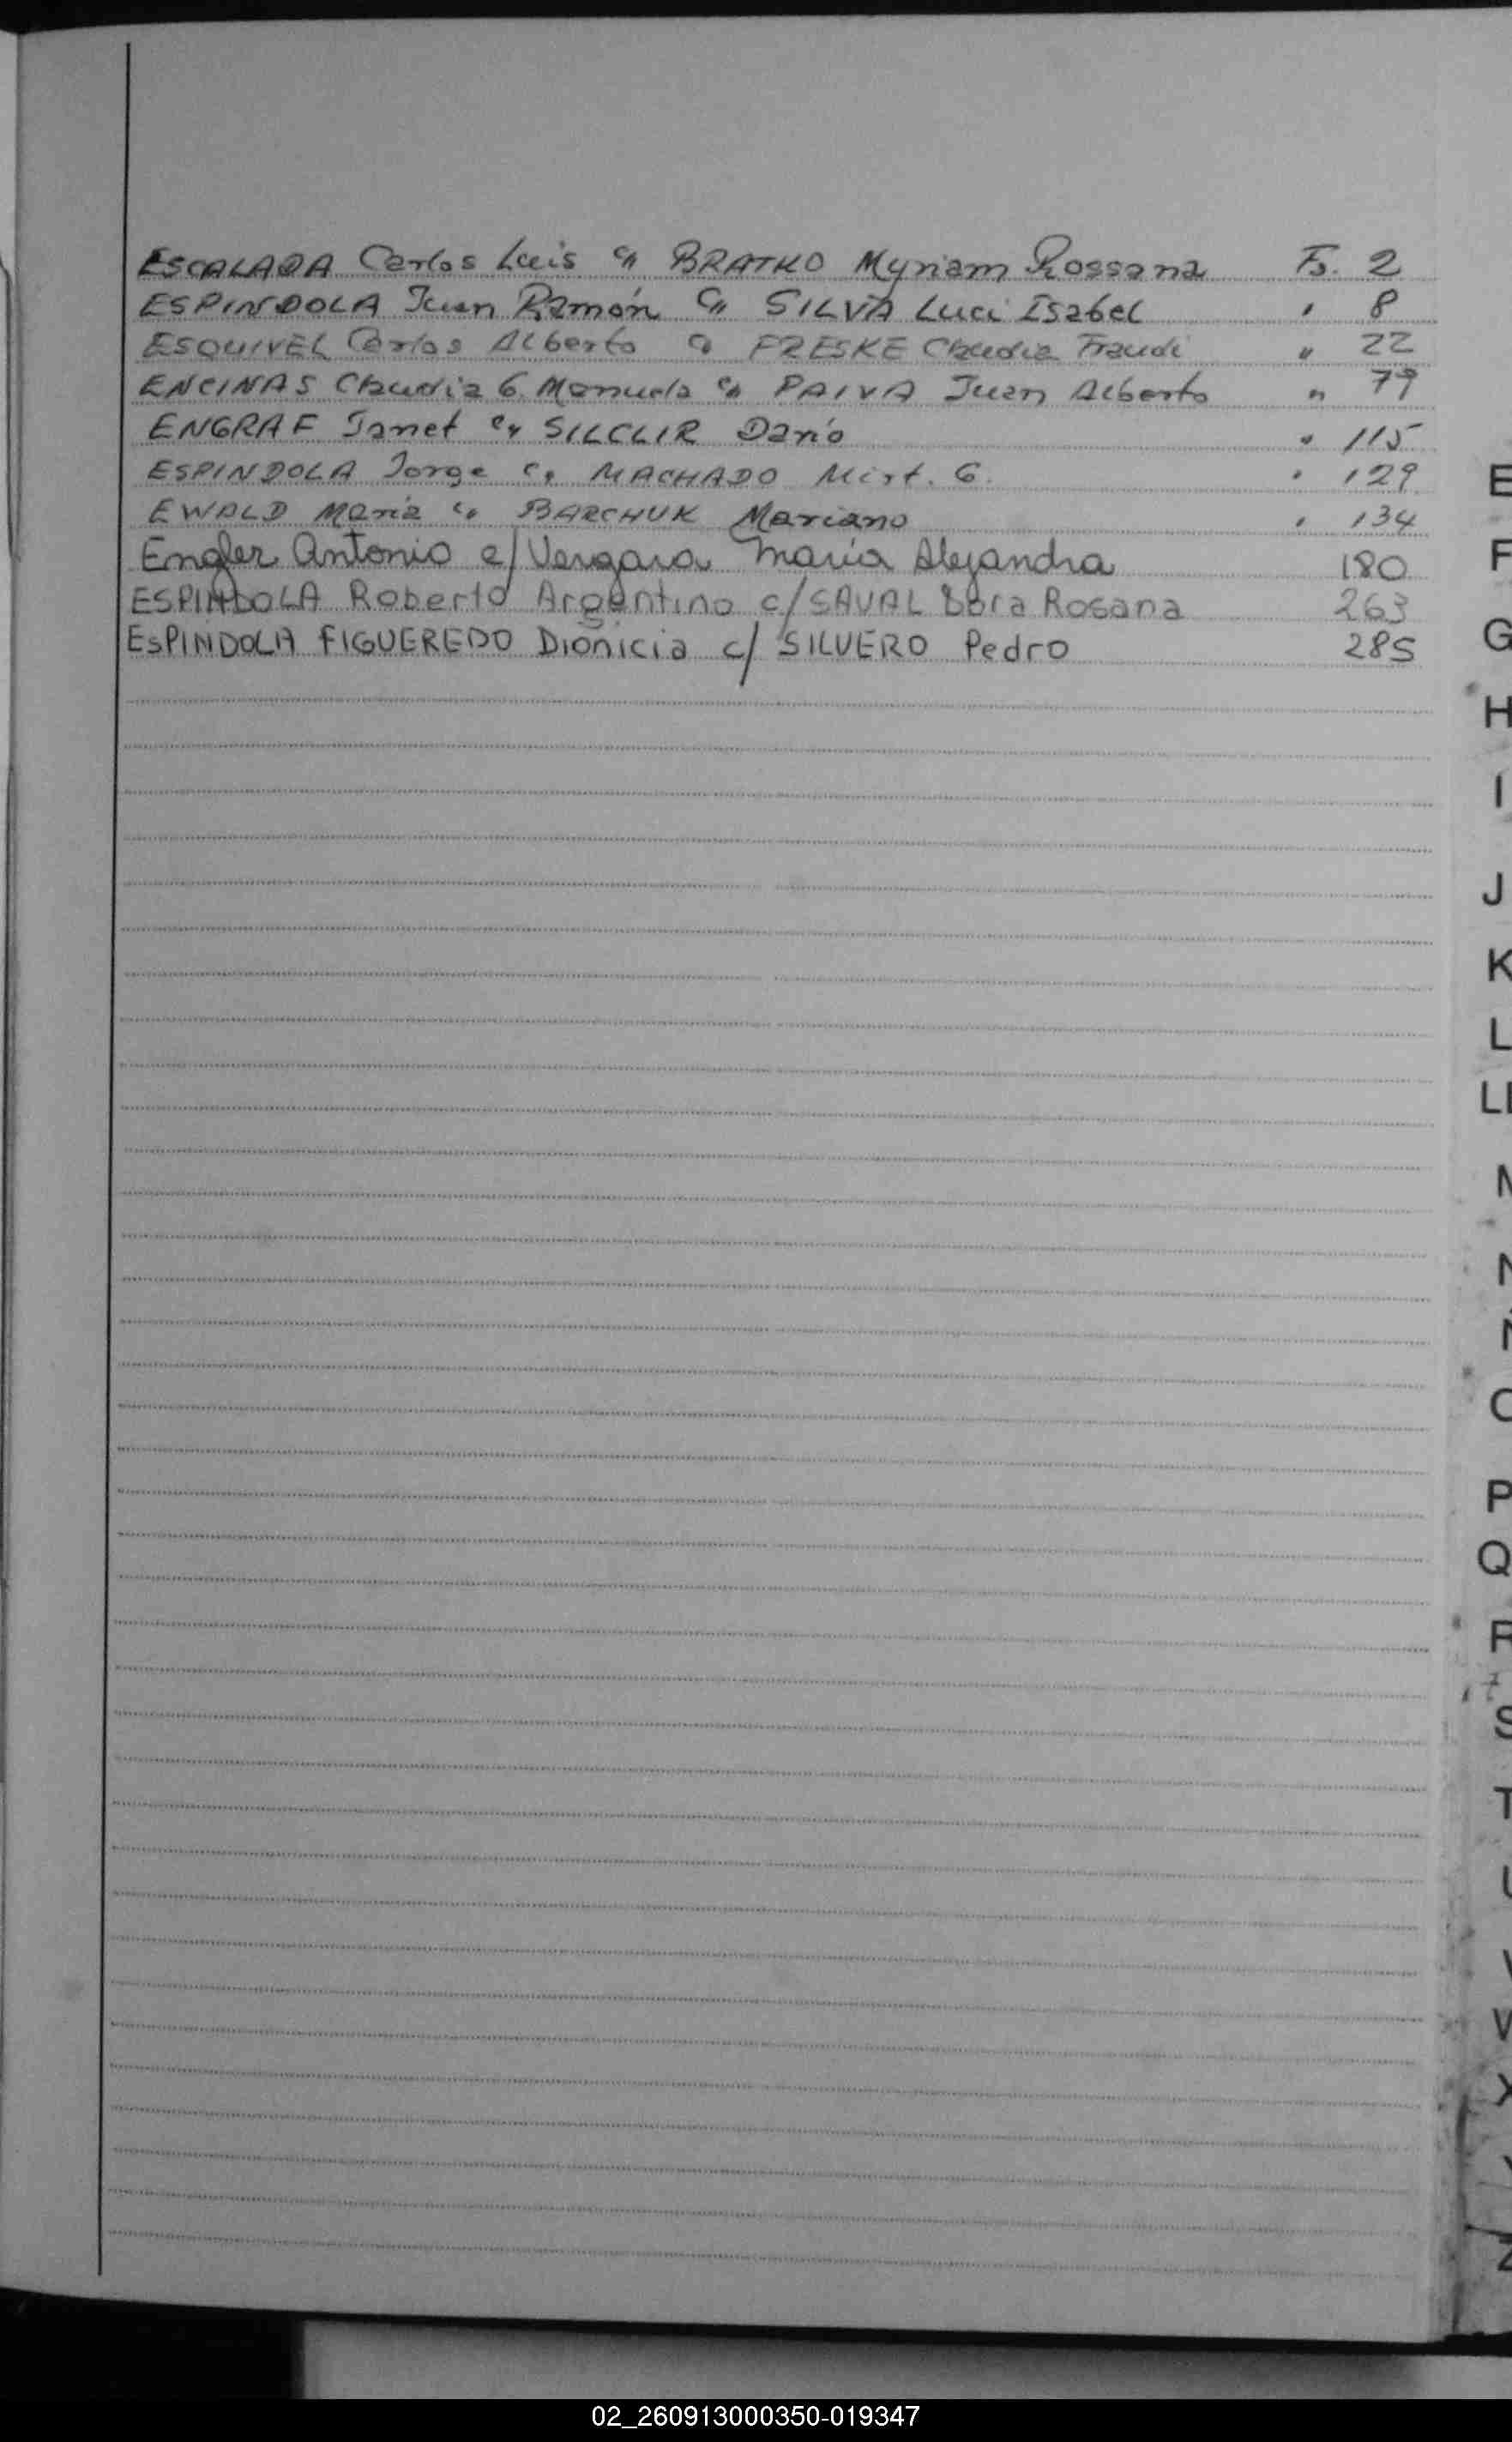 ESCALADA Carlos Luis c/ BRATKO Myriam Rossana Fs. 2
ESPINDOLA Juan Ramón c/ SILVA Luci Isabel " 8
ESQUIVEL Carlos Alberto c/ FRESKE Claudia Fraudi " 22
ENCINAS Claudia G. Manuela c/ PAIVA Juan Alberto " 79
ENGRAF Janet c/ SILCLIR Darío " 115
ESPINDOLA Jorge c/ MACHADO Mirt. G. " 129
EWALD María c/ BARCHUK Mariano " 134
Engler Antonio c/ Vergara María Alejandra 180
ESPINDOLA Roberto Argentino c/ SAVAL Rosana 263
ESPINDOLA FIGUEREDO Dionicia c/ SILVERO Pedro 285
E
F
G
H
I
J
K
L
Ll
M
N
Ñ
O
P
Q
R
S
T
U
V
W
X
Y
Z
02_260913000350-019347